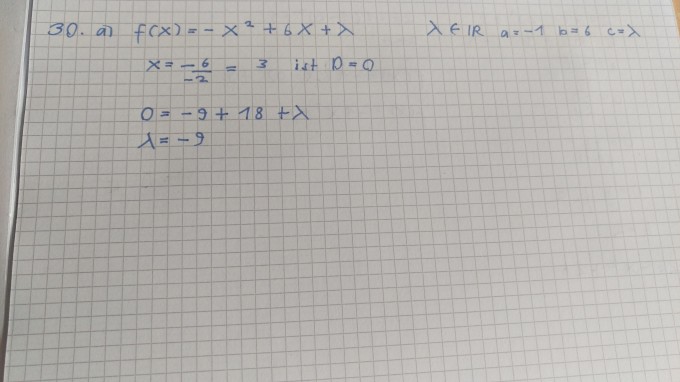 30. a) f(x) = - x² + 6x + λ λ ∈ ℝ a = -1 b = 6 c = λ
x = -6/-2 = 3 ist D = 0
0 = - 9 + 18 + λ
λ = - 9